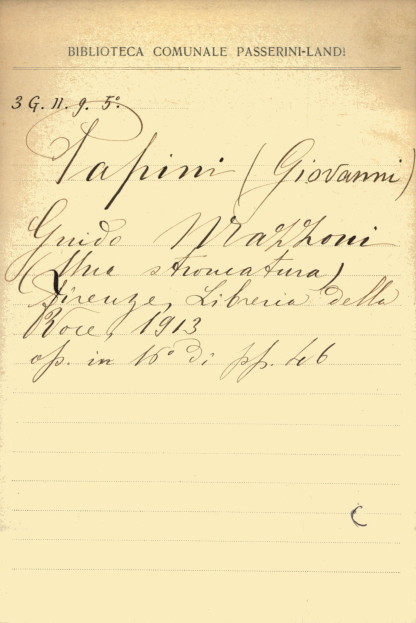 BIBLIOTECA COMUNALE PASSERINI-LANDI
3 G. 11. 9. 5°
Papini (Giovanni)
Guido Mazzoni
(Una stroncatura)
Firenze, Libreria della
Voce, 1913
op. in 16° di pp. 46
C